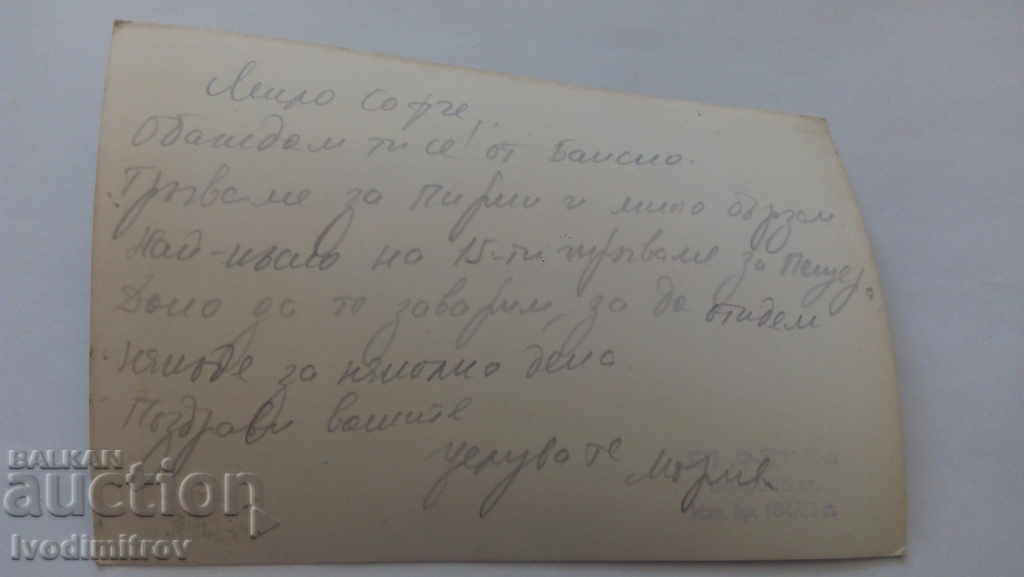 Мила Софче,
Обаждам ти се! от Банско.
Тръгваме за Пирин и много бързам
Най-късно на 15-ти тръгваме за Пещер.
Дано да те заварим, за да отидем
някъде за няколко дена
Поздрави вашите
целува те
BALKAN
auction
Ivodimitrov